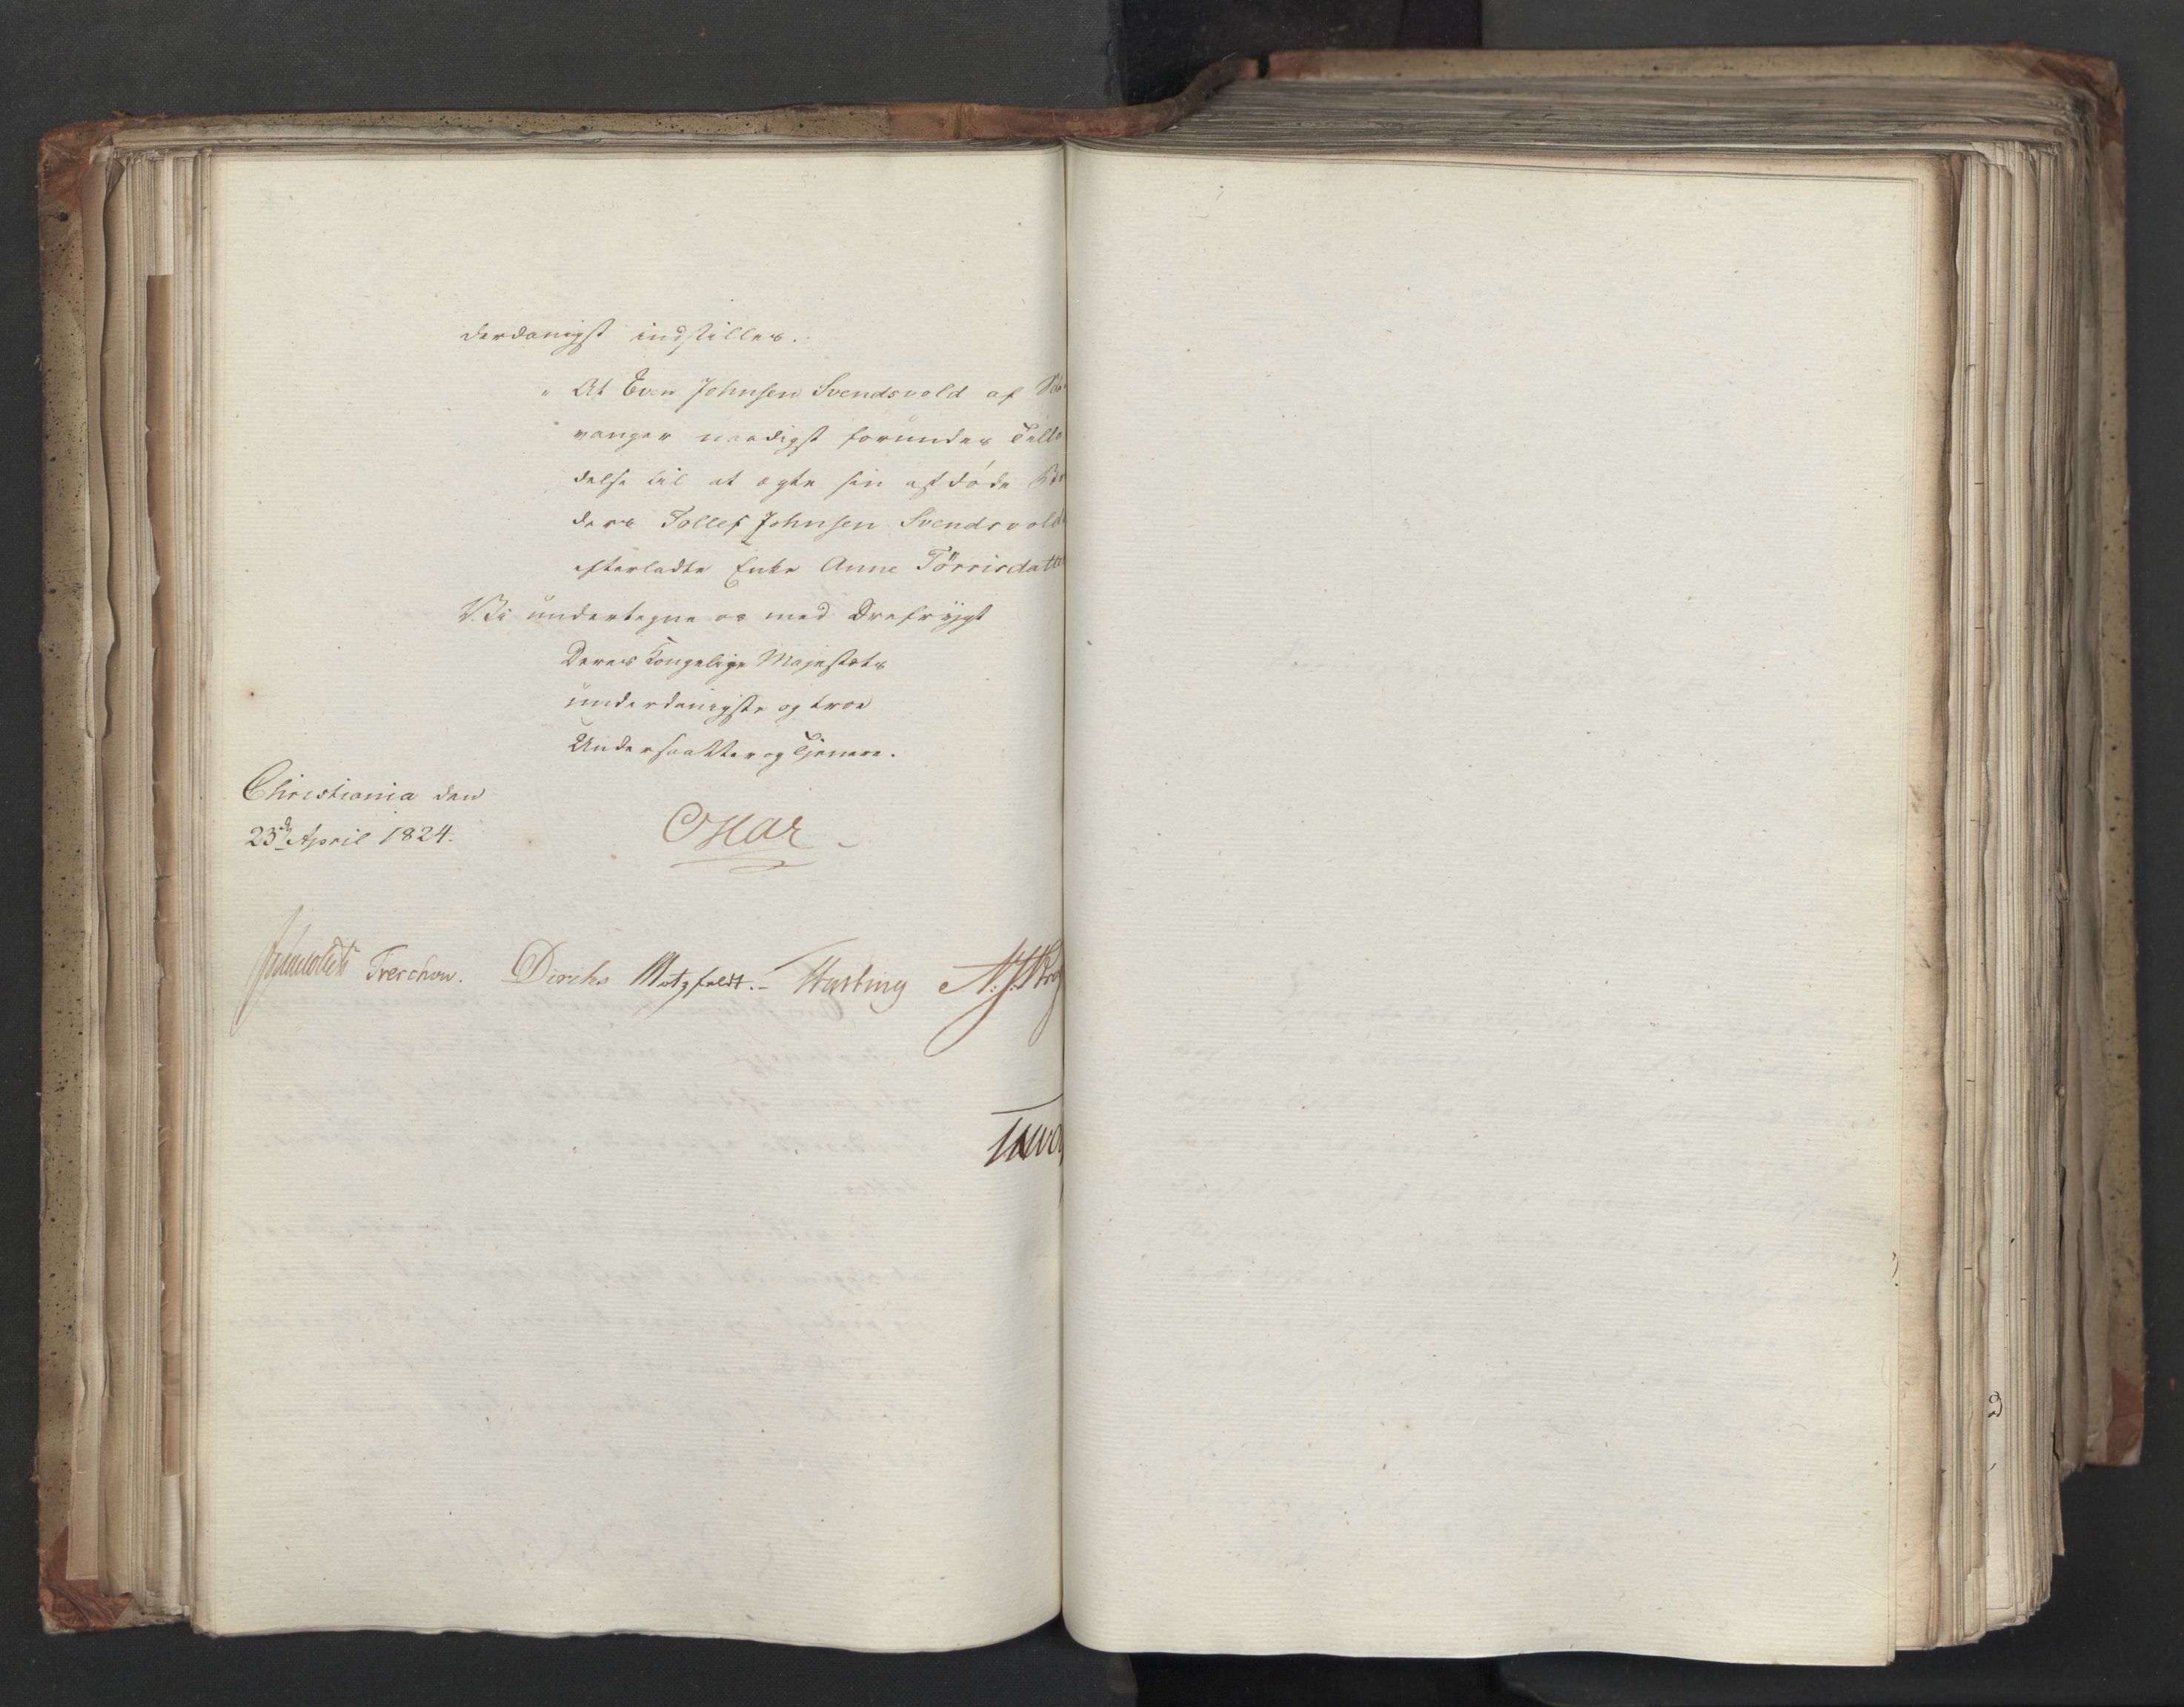 derdanigst indstilles.
" At Even Johnsen Svendsvold af
vanger naadigst forundes Tilla
delse til at ægte sin afdøde Bro
ders Tollef Johnsen Svendsvold
efterladte Enke Anne Törrisdatte
Vi undertegne os med Ærefrygt
Deres Kongelige Majestæts
underdanigste og troe
Undersaatter og Tjenere.
Christiania den
23de April 1824.
Oscar
Treschow. Diriks Motzfeldt. Fasting